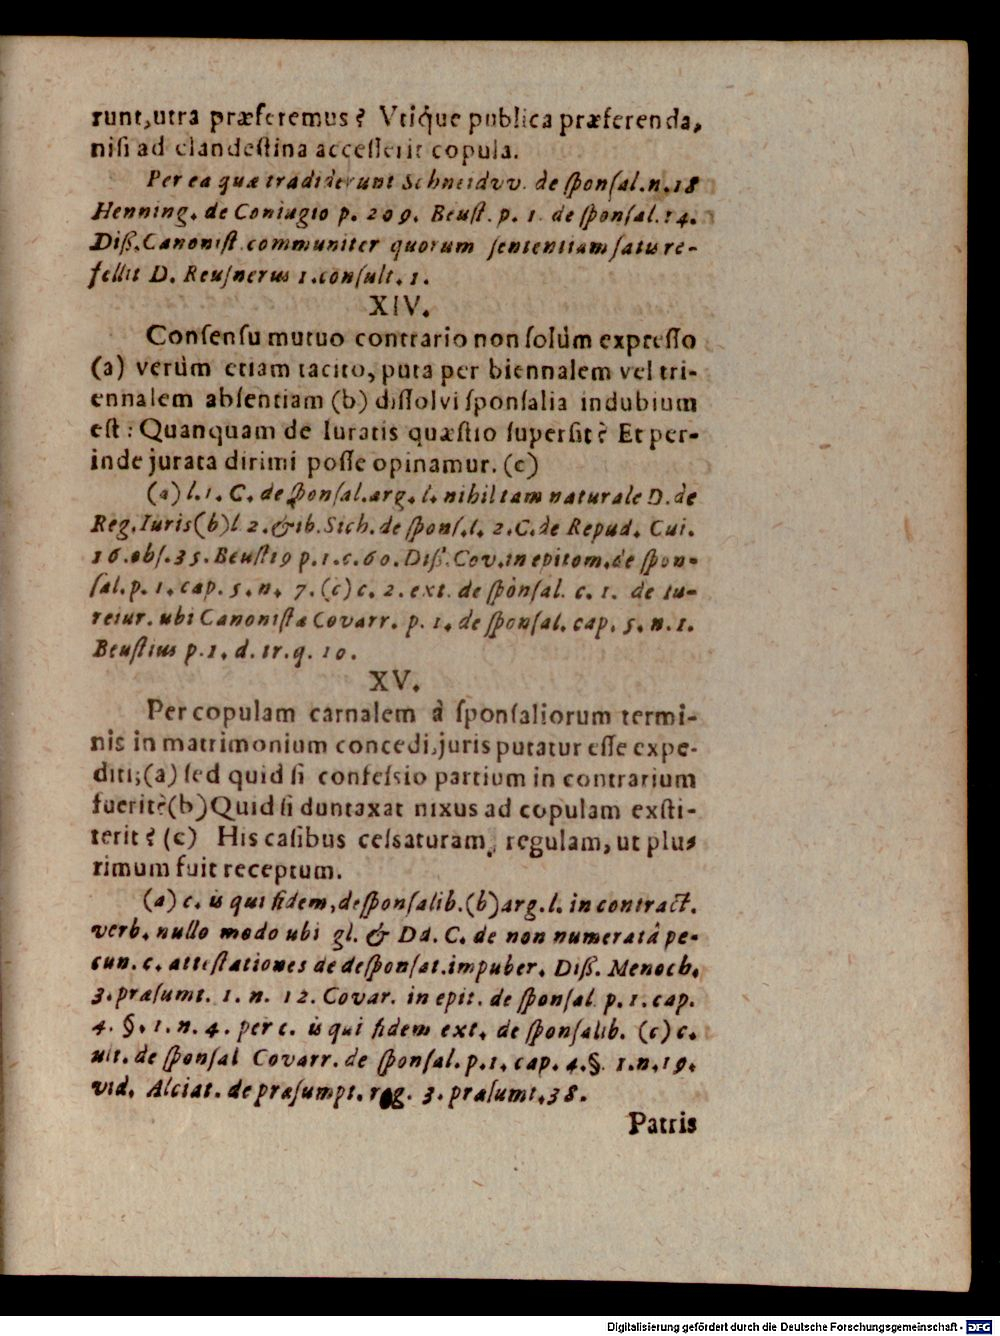 runt, utra præferemus? Vtiq́ue publica præferenda,
nisi ad clandestina accesserit copula.
Per ea quæ tradiderunt Schneidvv. de sponsal. n. 18
Henning. de Coniugio p. 209. Beust. p. 1 de sponsal. 14.
Diß. Canonist. communiter quorum sententiam satis re-
fellit D. Reusnerus 1. consult. 1.
XIV.
Consensu mutuo contrario non solùm expresso
(a) verùm etiam tacito, puta per biennalem vel tri-
ennalem absentiam (b) dissolvi sponsalia indubium
est: Quanquam de Iuratis quæstio supersit? Et per-
inde jurata dirimi posse opinamur. (c)
(a) l. 1. C. de sponsal. arg. l. nihil tam naturale D. de
Reg. Iuris (b) l 2. & ib. Sich. de spons. l. 2. C. de Repud. Cui.
16. obs. 35. Beusti9 p. 1. c. 60. Diß. Cov. in epitom. de spon-
sal. p. 1. cap. 5. n. 7. (c) c. 2. ext. de sponsal. c. 1. de iu-
reiur. ubi Canonistæ Covarr. p. 1. de sponsal. cap. 5. n. 1.
Beustius p. 1. d. tr. q. 10.
XV.
Per copulam carnalem à sponsaliorum termi-
nis in matrimonium concedi, juris putatur esse expe-
diti; (a) sed quid si confessio partium in contrarium
fuerit? (b) Quid si duntaxat nixus ad copulam exsti-
terit? (c) His casibus cessaturam, regulam, ut plu-
rimum fuit receptum.
(a) c. is qui fidem, de sponsalib. (b) arg. l. in contract.
verb. nullo modo ubi gl. & Dd. C. de non numeratâ pe-
cun. c. attestationes de desponsat. impuber. Diß. Menoch.
3. præsumt. 1. n. 12. Covar. in epit. de sponsal p. 1. cap.
4. §. 1. n. 4. per c. is qui fidem ext. de sponsalib. (c) c.
ult. de sponsal Covarr. de sponsal. p. 1. cap. 4. §. 1. n. 19.
vid. Alciat. de præsumpt. reg. 3. præsumt. 38.
Patris
Digitalisierung gefördert durch die Deutsche Forschungsgemeinschaft - DFG